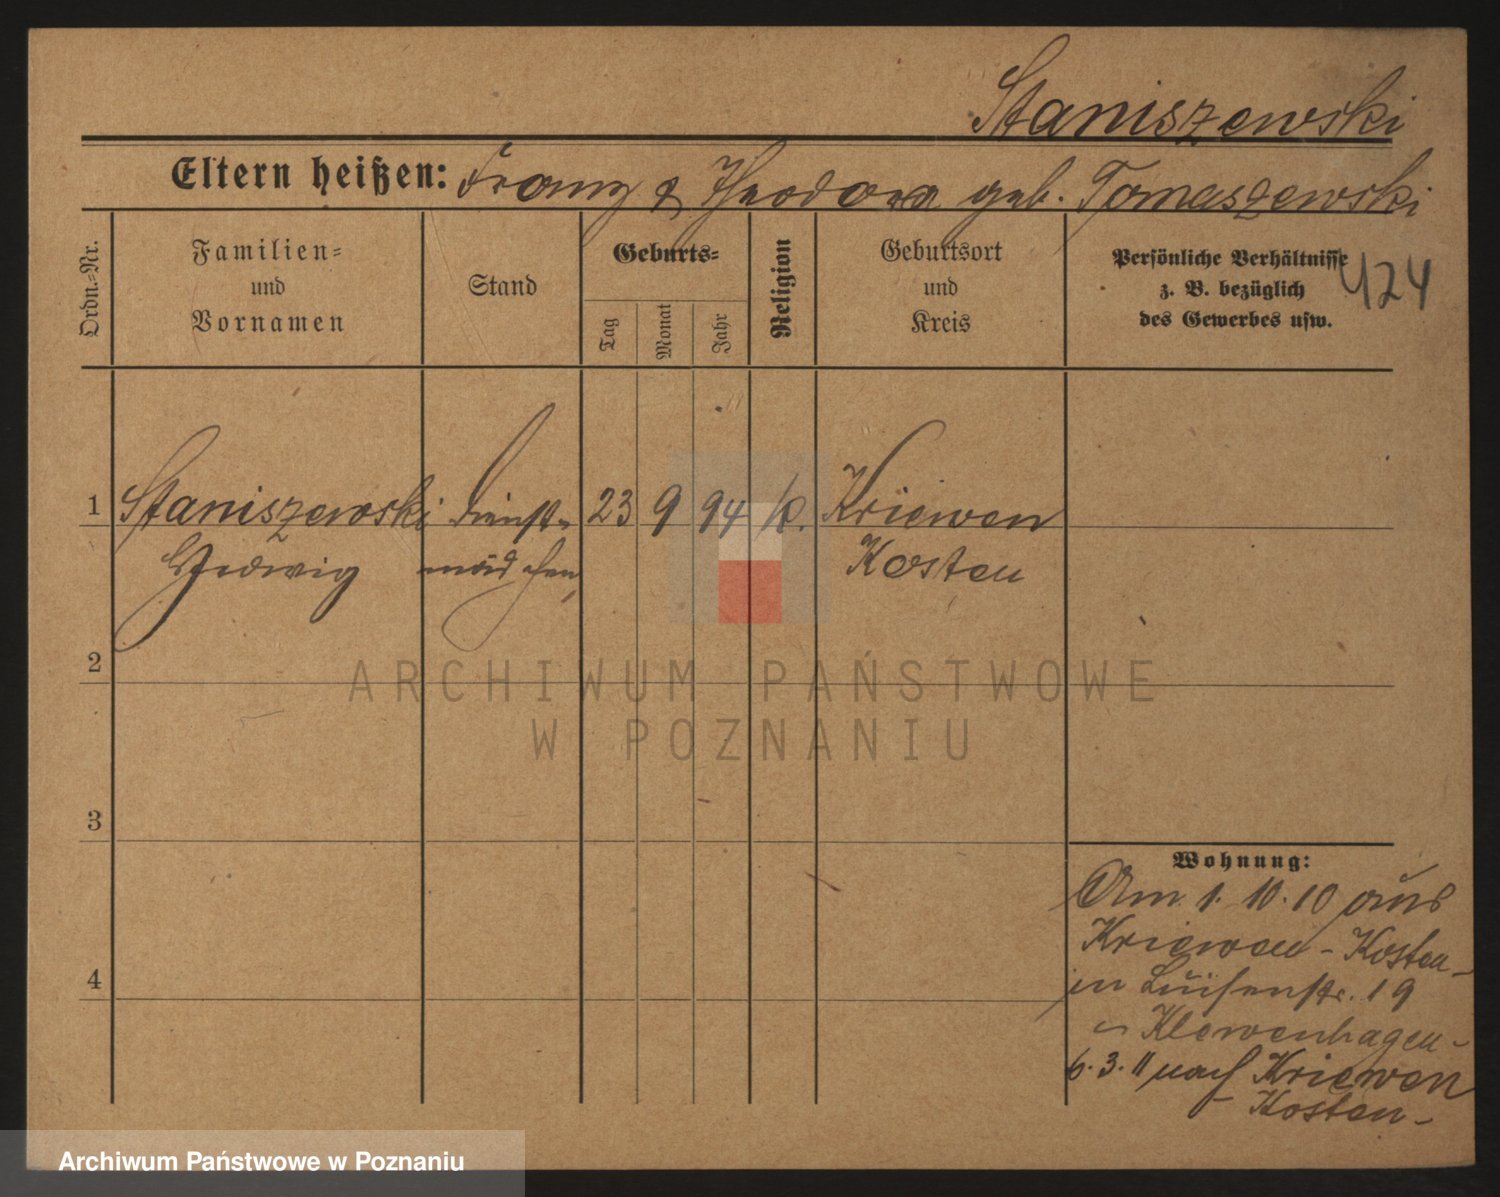 Staniszewski
Eltern heißen: Franz & Theodora geb. Tomaszewski
Ordn.-Nr.
Familien-
und
Vornamen
Stand
Geburts-
Tag
Monat
Jahr
Religion
Geburtsort
und
Kreis
Persönliche Verhältnisse
z. B. bezüglich
des Gewerbes usw.
424
1 Staniszewski Dienst- 23 9 94 k. Kriewen
Hedwig mädchen Kosten
2
3
4
ARCHIWUM PAŃSTWOWE
W POZNANIU
Wohnung:
Am 1. 10. 10 aus
Kriewen - Kosten -
in Luisenstr. 19
Klewenhagen -
6. 3. 11 nach Kriewen
Kosten -
Archiwum Państwowe w Poznaniu